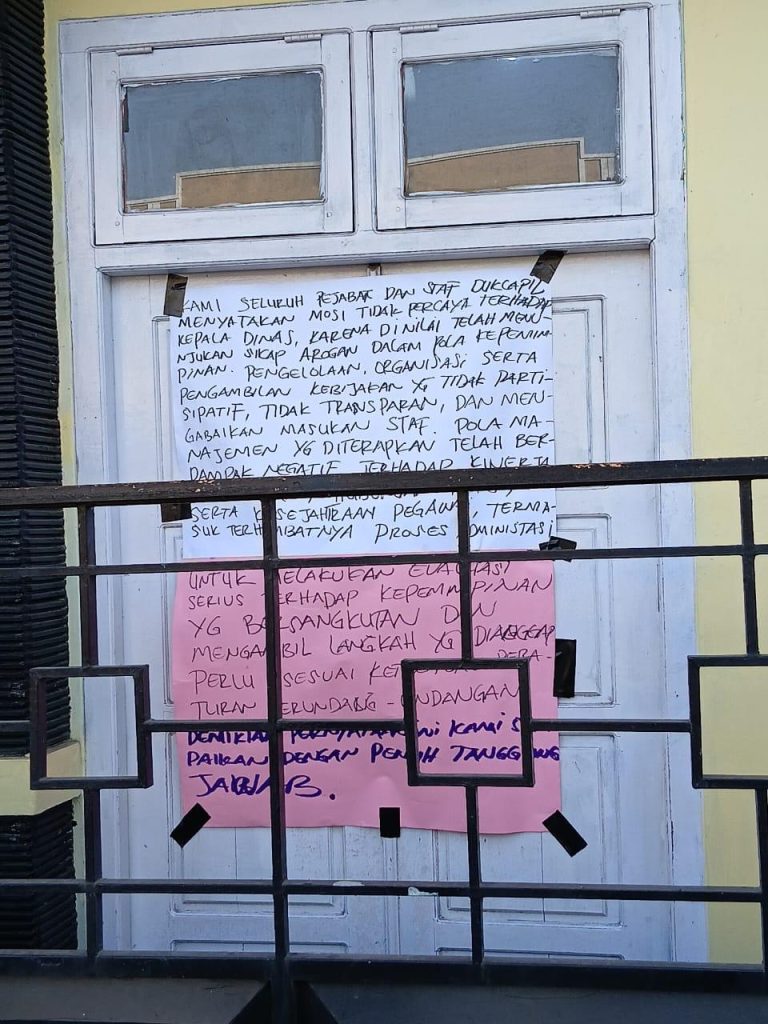 KAMI SELURUH PEJABAT DAN STAF DUKCAPIL
MENYATAKAN MOSI TIDAK PERCAYA TERHADAP
KEPALA DINAS, KARENA DINILAI TELAH MENU
NJUKAN SIKAP AROGAN DALAM POLA KEPEMIM-
PINAN. PENGELOLAAN, ORGANISASI SERTA
PENGAMBILAN KEBIJAKAN YG TIDAK PARTI-
SIPATIF, TIDAK TRANSPARAN, DAN MEN-
GABAIKAN MASUKAN STAF. POLA MA-
NAJEMEN YG DITERAPKAN TELAH BER-
DAMPAK NEGATIF TERHADAP KINERJA
SERTA KESEJAHTRAAN PEGAWAI, TERMA-
SUK TERHAMBATNYA PROSES ADMINISTASI
UNTUK MELAKUKAN EVALUASI
SERIUS TERHADAP KEPEMIMPINAN
YG BERSANGKUTAN DAN
MENGAMBIL LANGKAH YG DIANGGAP
PERLU SESUAI PERA-
TURAN PERUNDANG-UNDANGAN
DEMIKIAN PERNYATAAN INI KAMI S
PAIKAN DENGAN PENUH TANGGUNG
JAWAB.